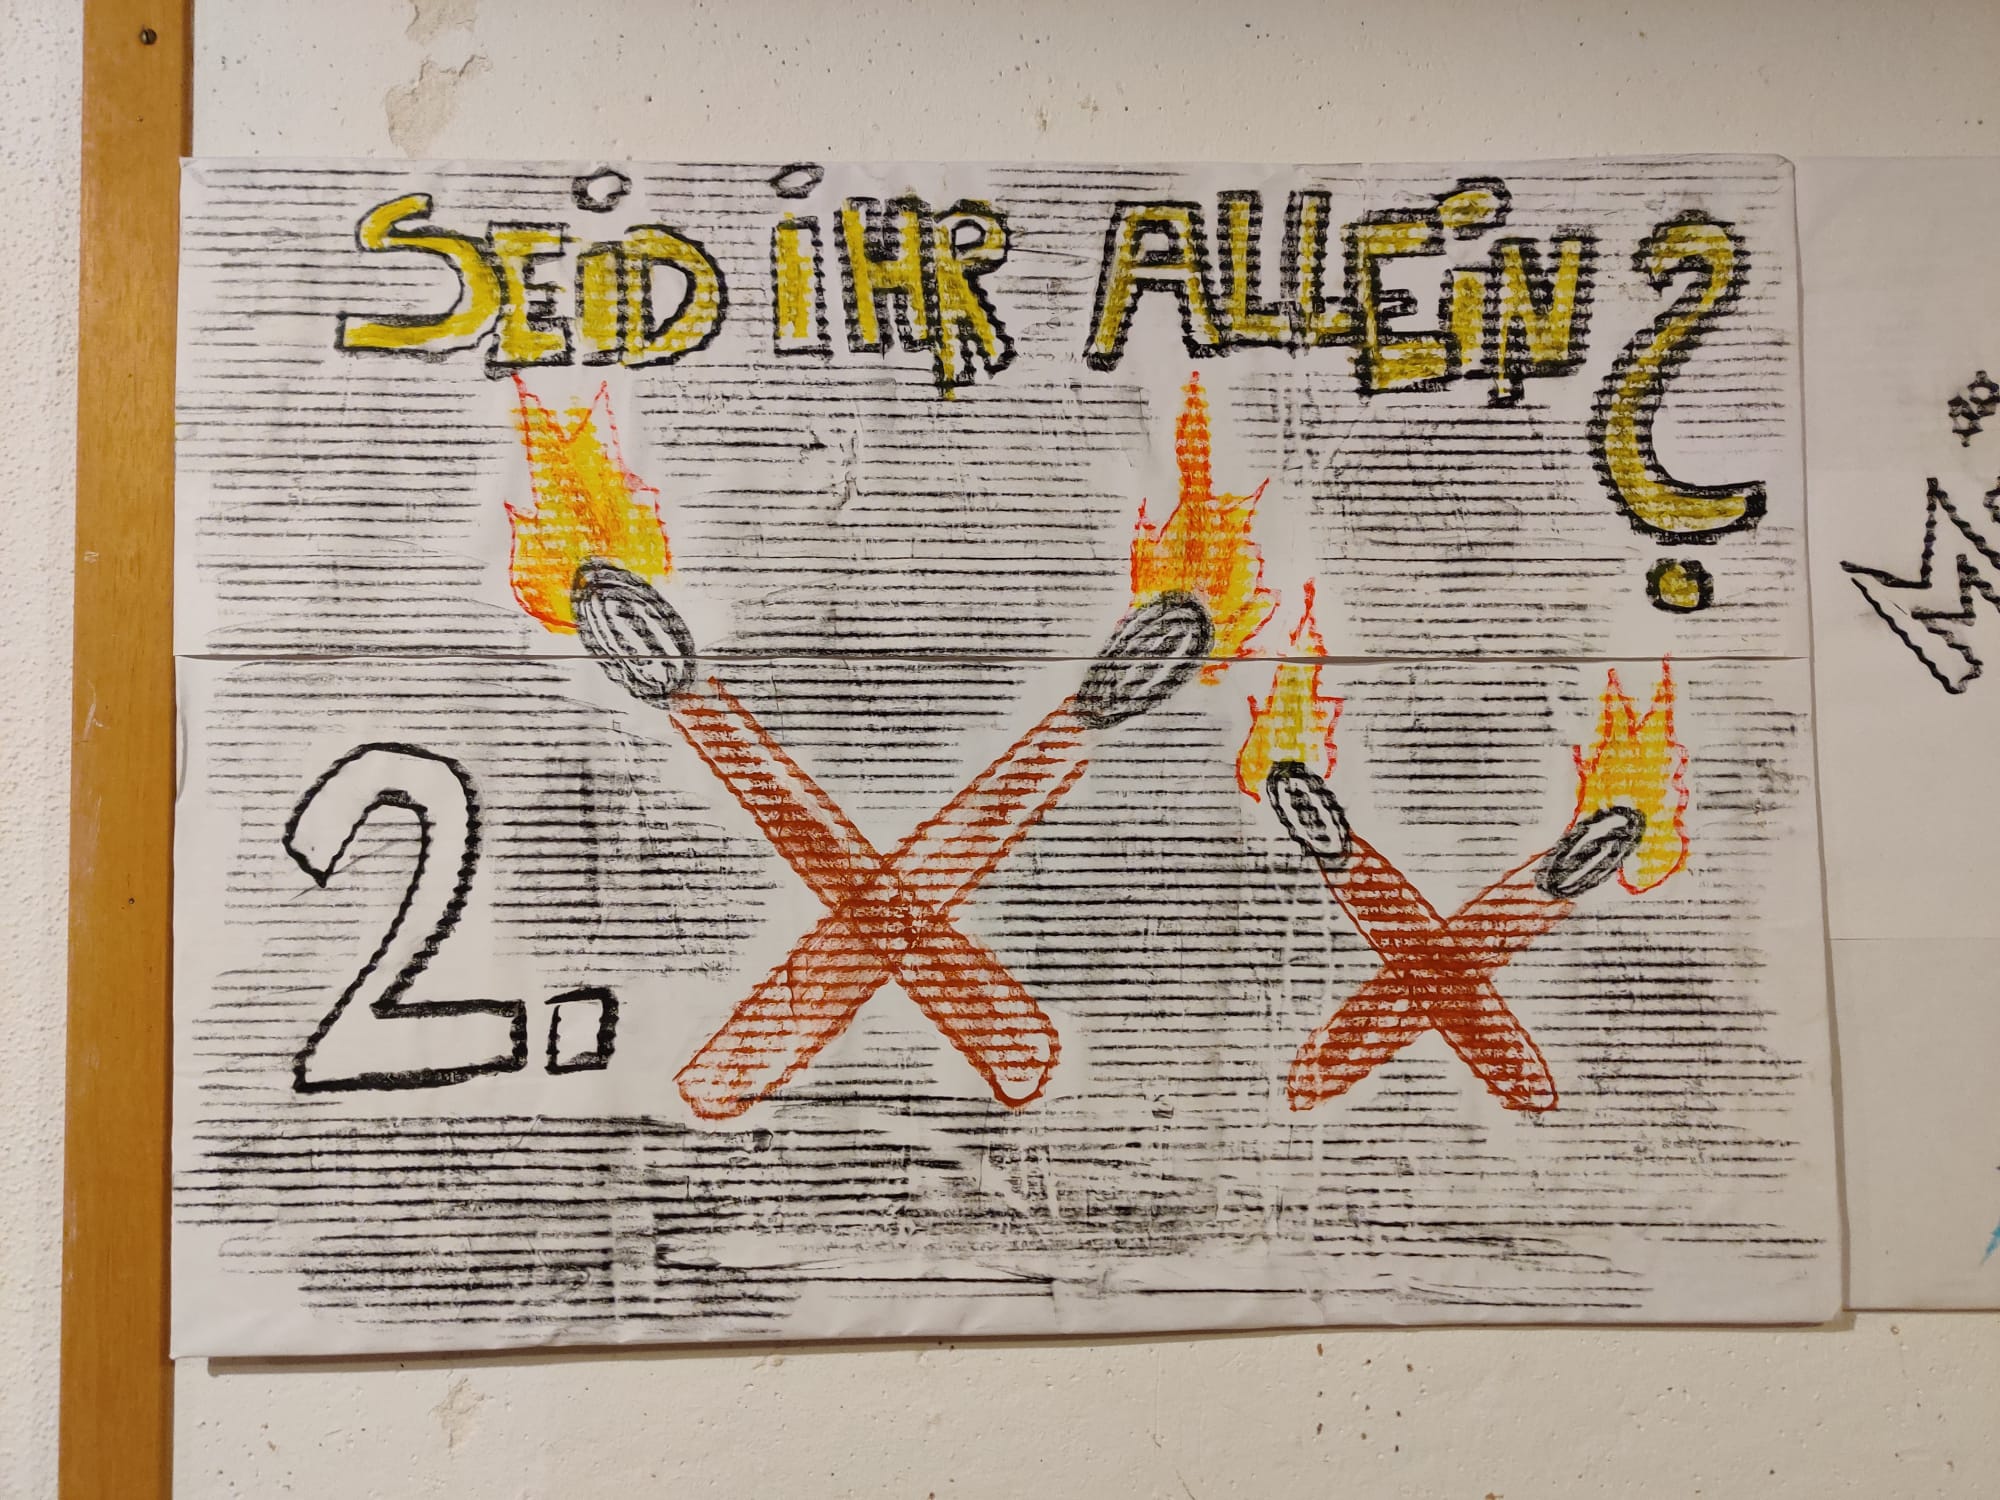 SEiD iHR ALLEiN?
2.